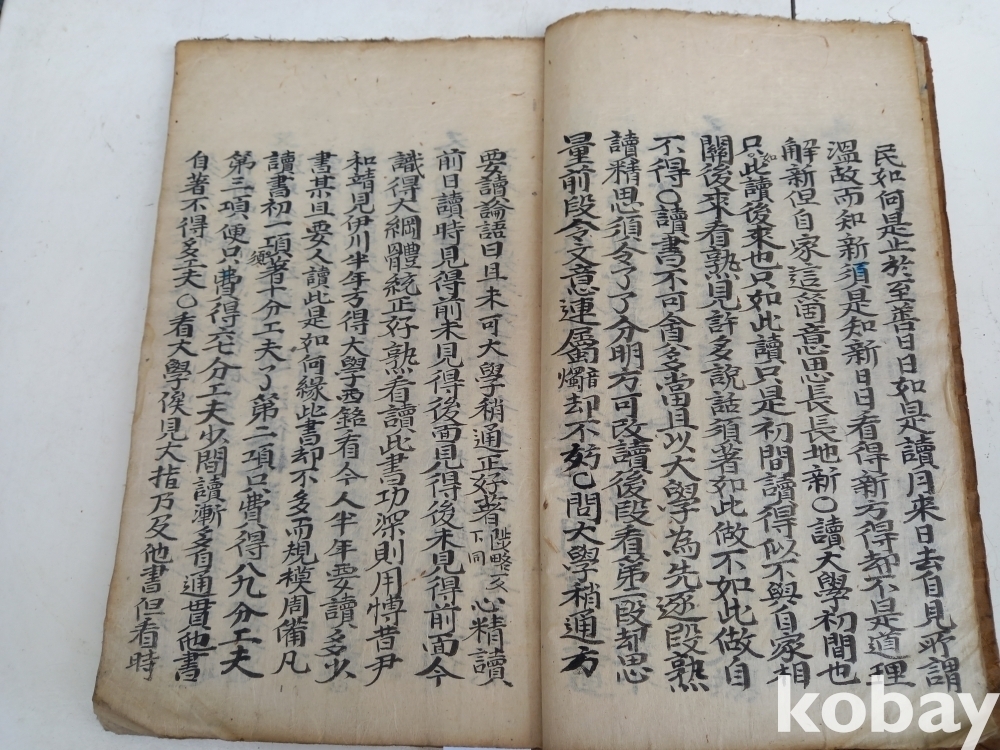 民如何是止於至善日日如是讀月來日去自見所謂
溫故而知新須是知新日日看得新方得却不是道理
解新但自家這箇意思長長地新○讀大學初間也
只如此讀後來也只如此讀只是初間讀得似不與自家相
關後來看熟見許多說話須著如此做不如此做自
不得○讀書不可貪多當且以大學為先逐段熟
讀精思須令了了分明方可改讀後段看第二段却思
量前段令文意連屬音燭却不妨已問大學稍通方
要讀論語曰且未可大學稍通正好著心精讀
前日讀時見得前未見得後面見得後未見得前面今
識得大綱體統正好熟看讀此書功深則用博昔尹
和靖見伊川半年方得大學西銘看今人半年要讀多少
書某且要人讀此是如何緣此書却不多而規模周備凡
讀書初一項須著十分工夫了第二項只費得八九分工夫
第三項便只費得六七分工夫少間讀漸多自通貫他書
自著不得多工夫○看大學俟見大指乃及他書但看時
kobay